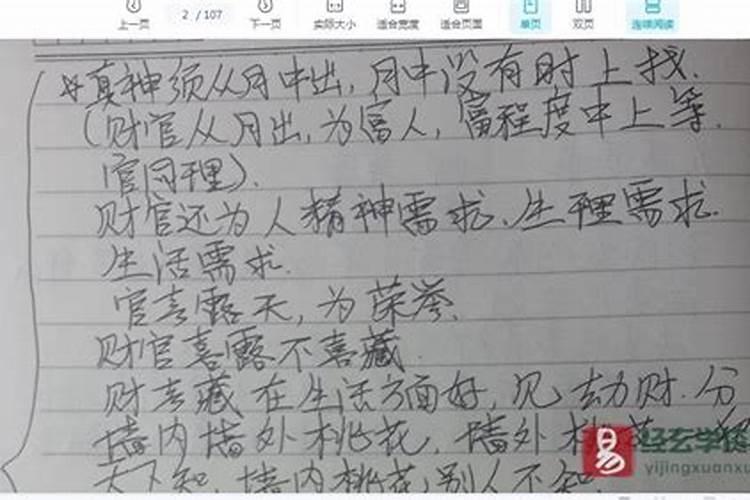 上一页 2 / 107 下一页 实际大小 适合宽度 适合页面 单页 双页 连续阅读
真神须从月中出，月中没有时上找.
(财官从月出，为富人，富程度中上等.
官同理).
财官还为人精神需求、生理需求.
生活需求.
官喜露天，为荣誉.
财官喜露不喜藏.
财喜藏在生活方面好，见劫财.分
墙内墙外桃花，墙外桃
天下知，墙内桃花，别人不知
易 经玄学
yijingxuanxu